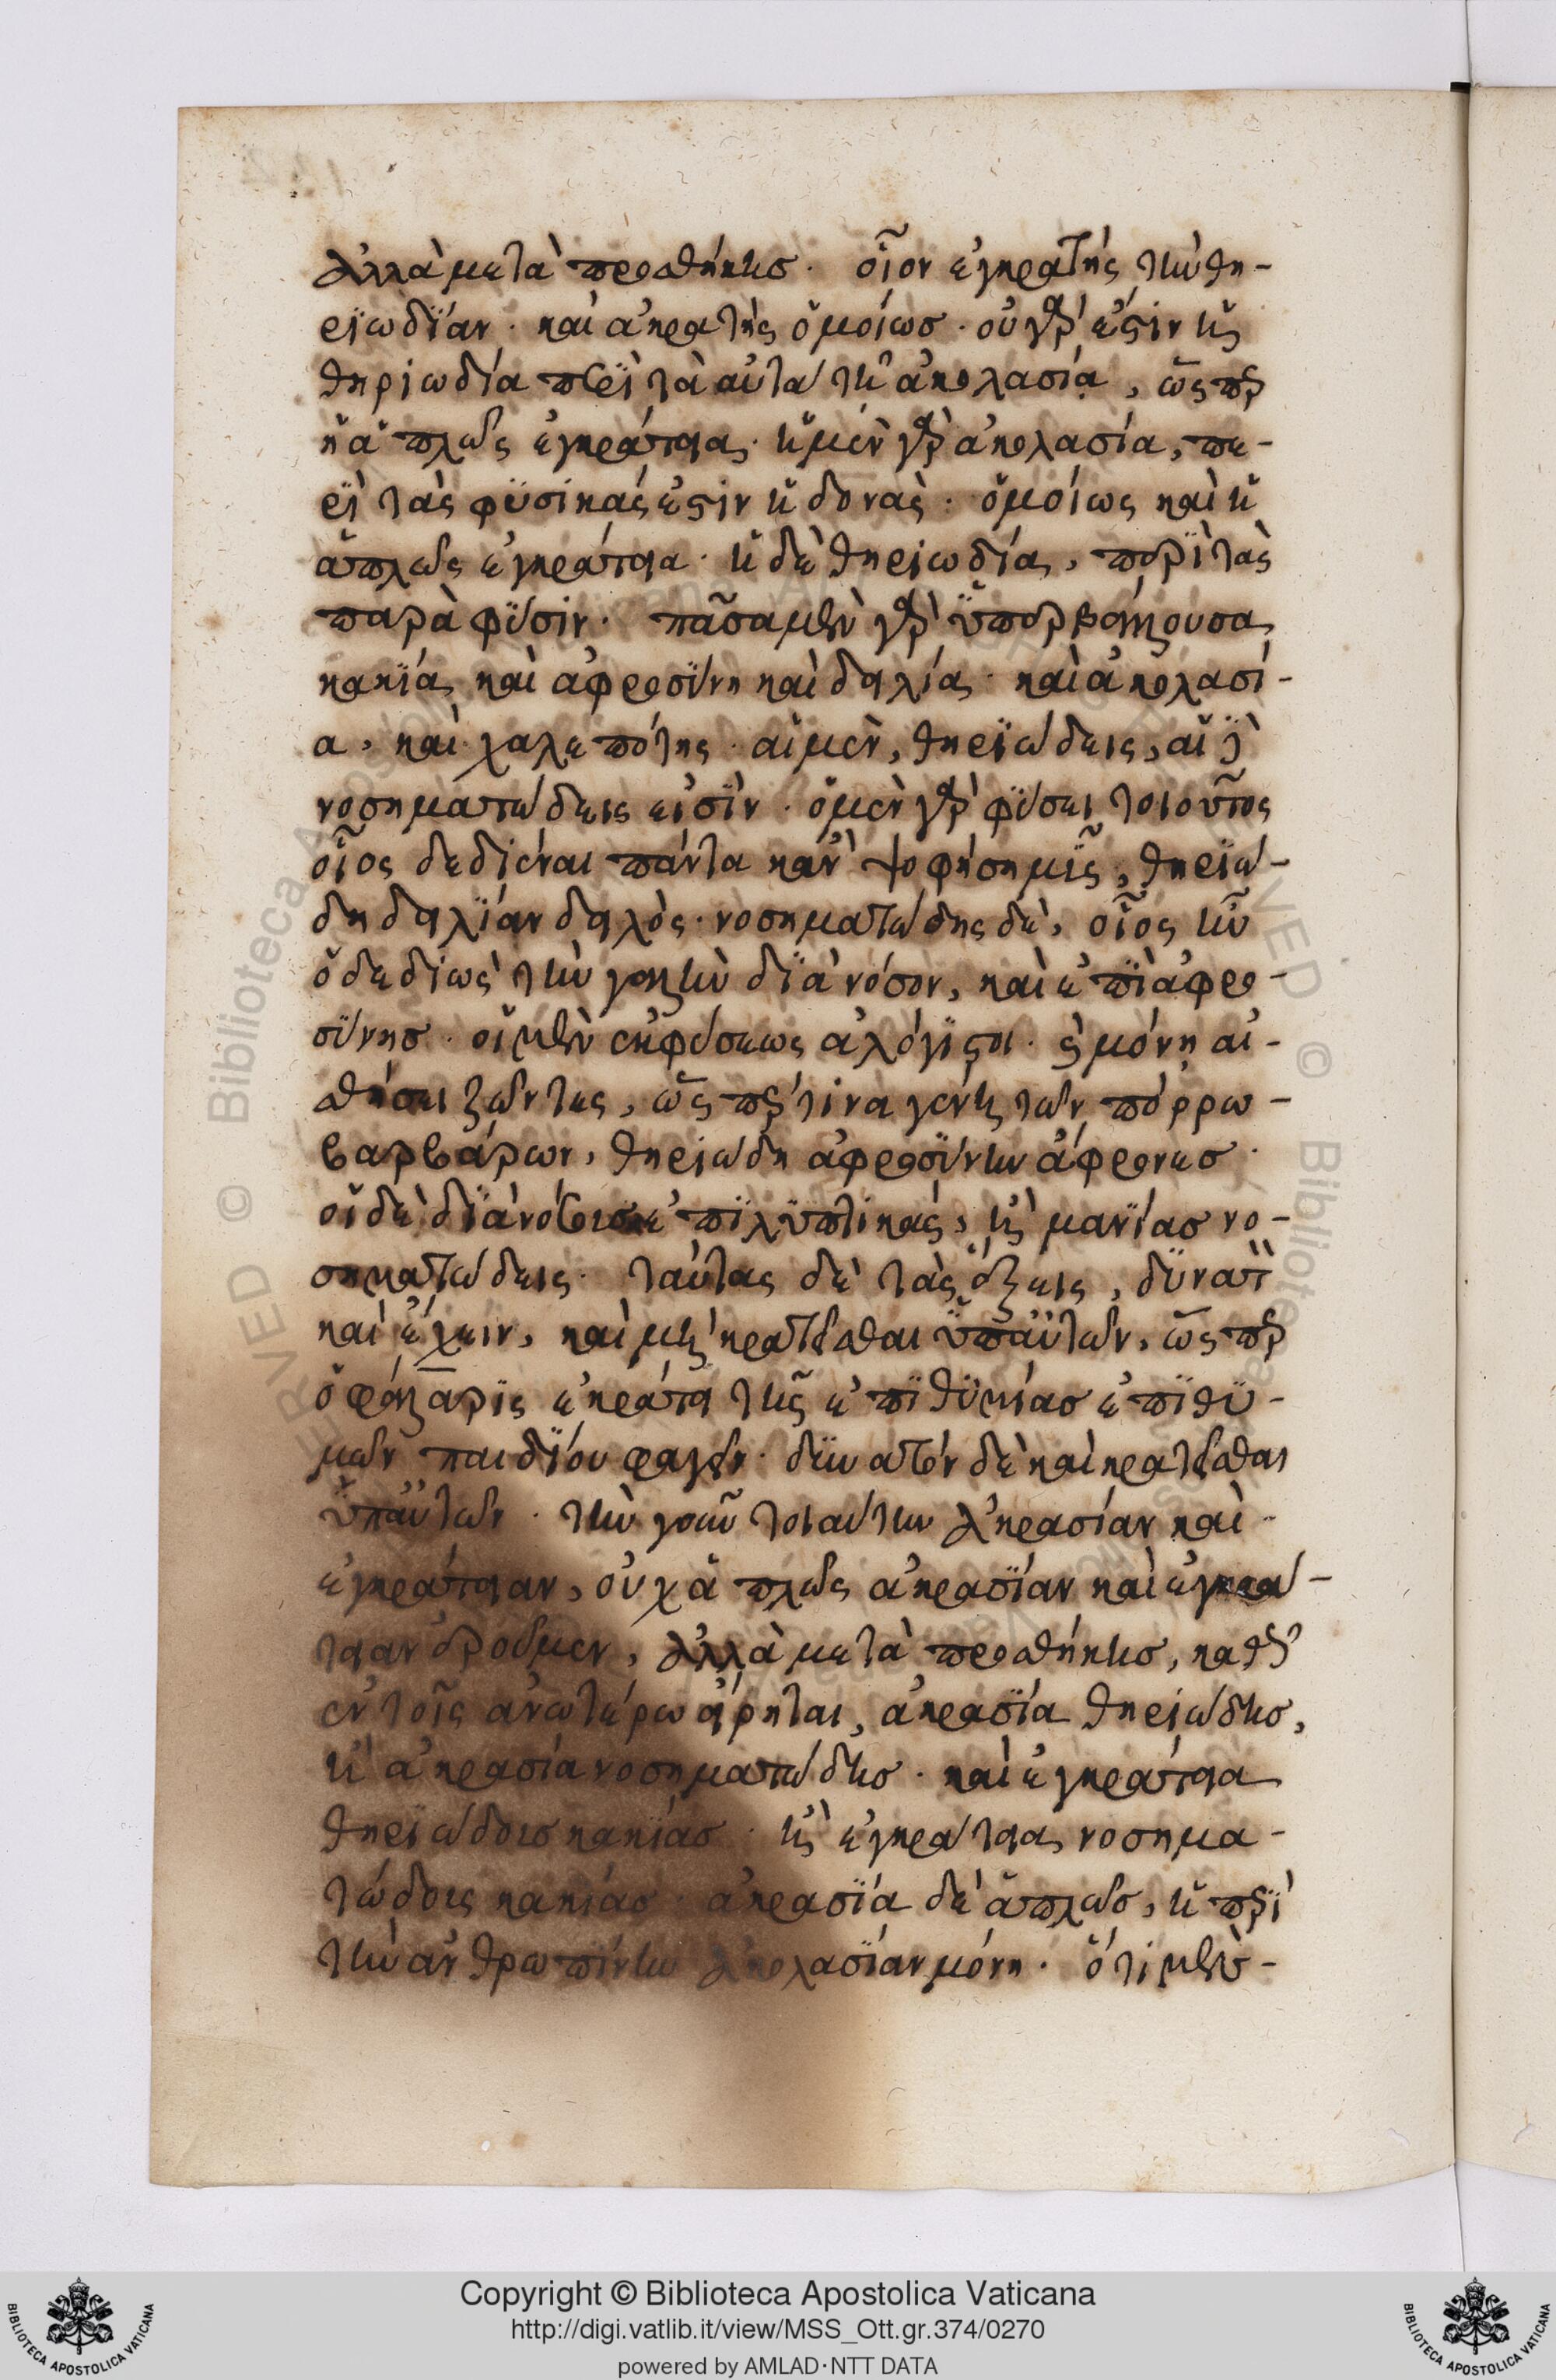 ἀλλὰ μετὰ προσθήκησ. οἷον ἐγκρατὴς τὴν θη-
ριωδίαν. καὶ ἀκρατὴς ὁμοίωσ. οὐ γάρ ἐστιν ἡ
θηριωδία περὶ τὰ αὐτὰ τῆ ἀκολασία, ὥσπερ
ἡ ἁπλῶς ἐγκράτεια. ἡ μὲν γὰρ ἀκολασία, πε-
ρὶ τὰς φυσικάς ἐστιν ἡδονὰς. ὁμοίως καὶ ἡ
ἁπλῶς ἐγκράτεια. ἡ δὲ θηριωδία, περὶ τὰς
παρὰ φύσιν. πᾶσα μὲν γὰρ ὑπερβάλλουσα
κακία καὶ ἀφροσύνη καὶ δειλία. καὶ ἀκολασί-
α, καὶ χαλεπότης. αἱ μὲν, θηριώδεις, αἱ δὲ
νοσηματώδεις εἰσὶν. ὁ μὲν γὰρ φύσει τοιοῦτος
οἷος δεδιέναι πάντα κἂν ψοφήση μῦς, θηριώ-
δη δειλίαν δειλὸς. νοσηματώδης δὲ, οἷος ἦν
ὁ δεδιὼς τὴν γαλῆν διὰ νόσον, καὶ ἐπὶ ἀφρο-
σύνησ. οἱ μὲν ἐκ φύσεως ἀλόγιστοι. καὶ μόνη αἰ-
σθήσει ζῶντες, ὥσπερ τινὰ γένη τῶν πόρρω
βαρβάρων, θηριώδη ἀφροσύνην ἄφρονεσ.
οἱ δὲ διὰ νόσους ἐπιλυπτικάς, ἢ μανίασ νο-
σηματώδεις. ταύτας δὲ τὰς ἕξεις, δύναται
καὶ ἔχειν, καὶ μὴ κρατεῖσθαι ὑπ' αὐτῶν, ὥσπερ
ὁ φάλαρις ἐκράτει τῆς ἐπιθυμίασ ἐπιθυ-
μῶν παιδίου φαγεῖν. δυνατόν δὲ καὶ κρατεῖσθαι
ὑπ' αὐτῶν. τὴν γοῦν τοιαύτην ἀκρασίαν καὶ
ἐγκράτειαν, οὐχ ἁπλῶς ἀκρασίαν καὶ ἐγκρά-
τειαν ἐροῦμεν, ἀλλὰ μετὰ προσθήκησ, καθὼς
ἐν τοῖς ἀνωτέρω εἴρηται, ἀκρασία θηριώδησ,
ἢ ἀκρασία νοσηματώδησ. καὶ ἐγκράτεια
θηριώδουσ κακίασ. ἢ ἐγκράτεια νοσημα-
τώδους κακίασ. ἀκρασία δὲ ἁπλῶσ, ἡ περὶ
τὴν ἀνθρωπίνην ἀκολασίαν μόνη. ὅτι μὲν-
Copyright © Biblioteca Apostolica Vaticana
http://digi.vatlib.it/view/MSS_Ott.gr.374/0270
powered by AMLAD·NTT DATA